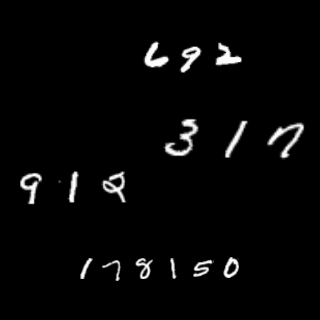 692
317
912
178150